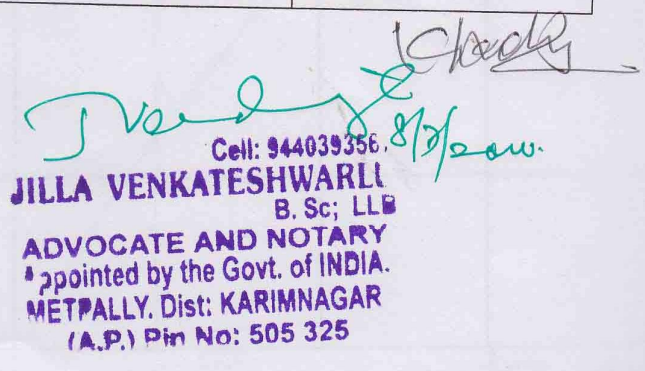 Cell: 944039356.
JILLA VENKATESHWARLU
B. Sc; LLB
ADVOCATE AND NOTARY
Appointed by the Govt. of INDIA.
METPALLY. Dist: KARIMNAGAR
(A.P.) Pin No: 505 325